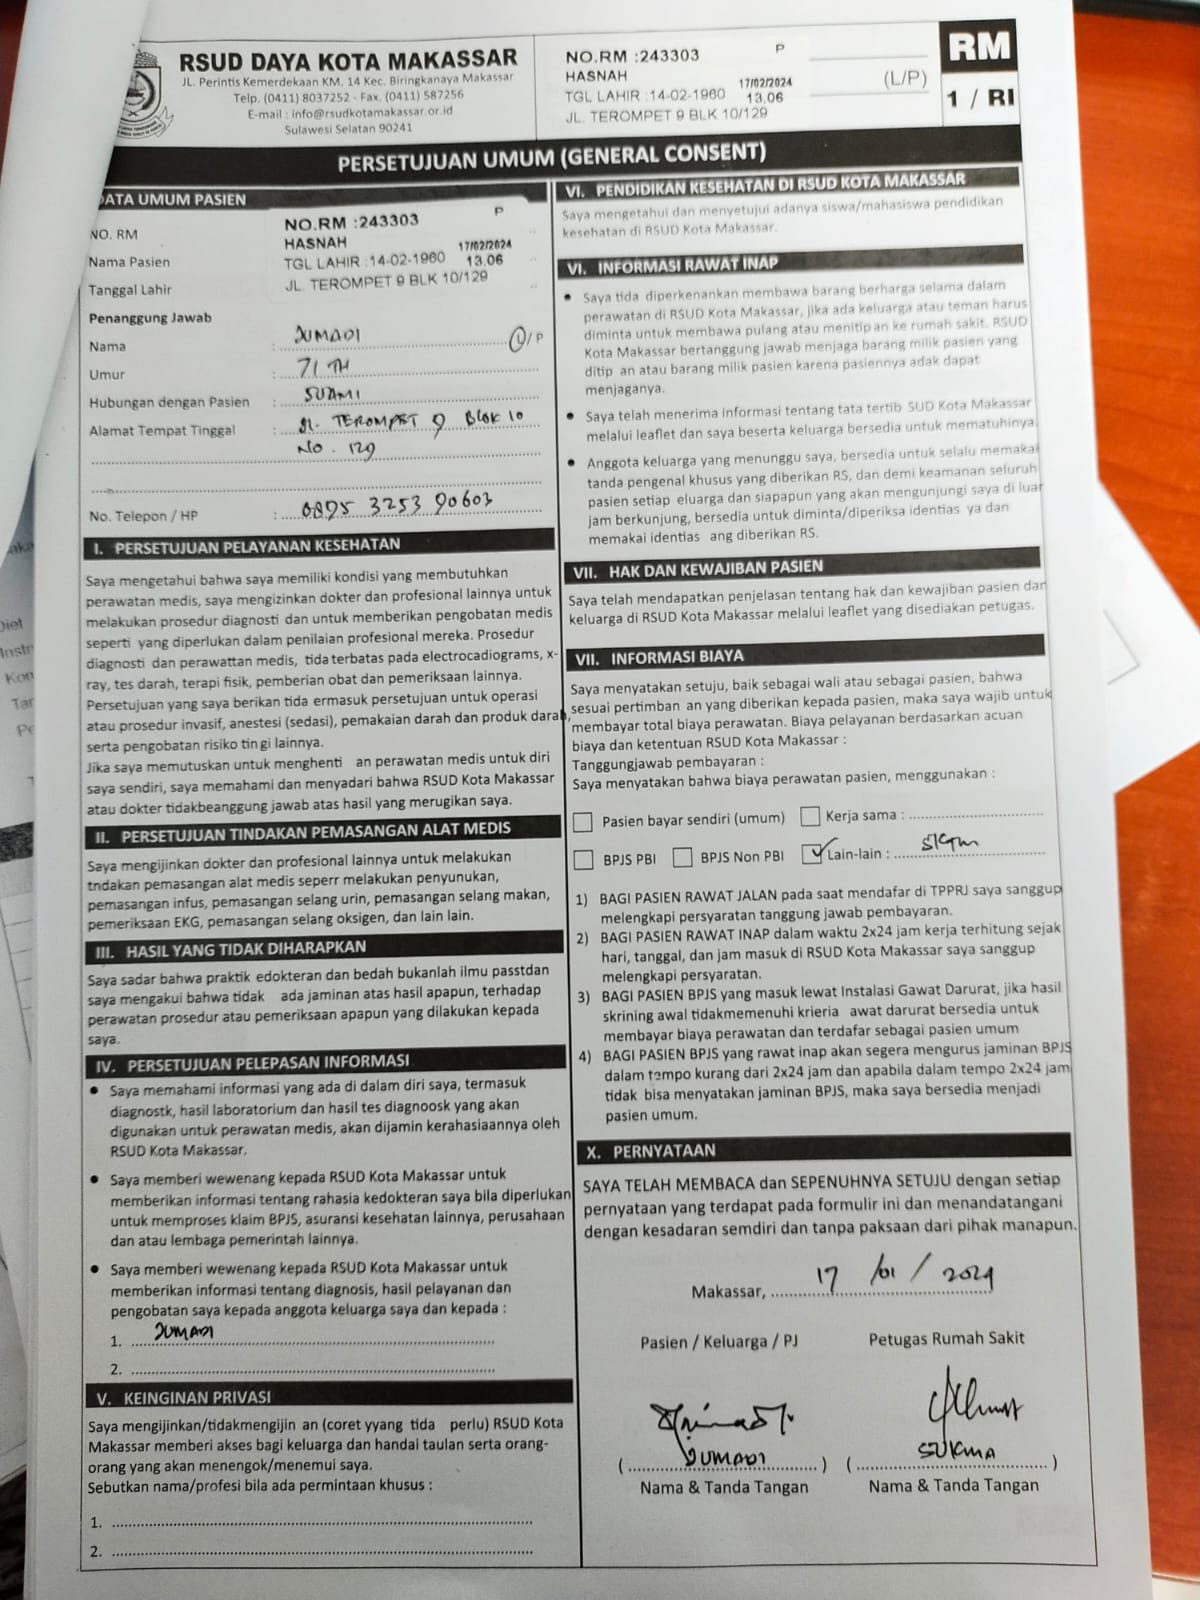 RSUD DAYA KOTA MAKASSAR
JL. Perintis Kemerdekaan KM. 14 Kec. Biringkanaya Makassar
Telp. (0411) 8037252 - Fax. (0411) 587256
E-mail : info@rsudkotamakassar.or.id
Sulawesi Selatan 90241
NO.RM :243303 P
HASNAH 17/02/2024
TGL LAHIR :14-02-1960 13.06
JL. TEROMPET 9 BLK 10/129
(L/P)
RM
1 / RI
PERSETUJUAN UMUM (GENERAL CONSENT)
DATA UMUM PASIEN
NO. RM
Nama Pasien
Tanggal Lahir
NO.RM :243303 P
HASNAH 17/02/2024
TGL LAHIR :14-02-1960 13.06
JL. TEROMPET 9 BLK 10/129
Penanggung Jawab
Nama : JUMADI L/P
Umur : 71 TH
Hubungan dengan Pasien : SUAMI
Alamat Tempat Tinggal : Jl. TEROMPET 9 BLOK 10
No. 129
No. Telepon / HP : 0895 3253 90603
I. PERSETUJUAN PELAYANAN KESEHATAN
Saya mengetahui bahwa saya memiliki kondisi yang membutuhkan
perawatan medis, saya mengizinkan dokter dan profesional lainnya untuk
melakukan prosedur diagnosti dan untuk memberikan pengobatan medis
seperti yang diperlukan dalam penilaian profesional mereka. Prosedur
diagnosti dan perawattan medis, tida terbatas pada electrocadiograms, x-
ray, tes darah, terapi fisik, pemberian obat dan pemeriksaan lainnya.
Persetujuan yang saya berikan tida ermasuk persetujuan untuk operasi
atau prosedur invasif, anestesi (sedasi), pemakaian darah dan produk darah,
serta pengobatan risiko tin gi lainnya.
Jika saya memutuskan untuk menghenti an perawatan medis untuk diri
saya sendiri, saya memahami dan menyadari bahwa RSUD Kota Makassar
atau dokter tidakbeanggung jawab atas hasil yang merugikan saya.
II. PERSETUJUAN TINDAKAN PEMASANGAN ALAT MEDIS
Saya mengijinkan dokter dan profesional lainnya untuk melakukan
tndakan pemasangan alat medis seperr melakukan penyunukan,
pemasangan infus, pemasangan selang urin, pemasangan selang makan,
pemeriksaan EKG, pemasangan selang oksigen, dan lain lain.
III. HASIL YANG TIDAK DIHARAPKAN
Saya sadar bahwa praktik edokteran dan bedah bukanlah ilmu passtdan
saya mengakui bahwa tidak ada jaminan atas hasil apapun, terhadap
perawatan prosedur atau pemeriksaan apapun yang dilakukan kepada
saya.
IV. PERSETUJUAN PELEPASAN INFORMASI
• Saya memahami informasi yang ada di dalam diri saya, termasuk
diagnostk, hasil laboratorium dan hasil tes diagnoosk yang akan
digunakan untuk perawatan medis, akan dijamin kerahasiaannya oleh
RSUD Kota Makassar.
• Saya memberi wewenang kepada RSUD Kota Makassar untuk
memberikan informasi tentang rahasia kedokteran saya bila diperlukan
untuk memproses klaim BPJS, asuransi kesehatan lainnya, perusahaan
dan atau lembaga pemerintah lainnya.
• Saya memberi wewenang kepada RSUD Kota Makassar untuk
memberikan informasi tentang diagnosis, hasil pelayanan dan
pengobatan saya kepada anggota keluarga saya dan kepada :
1. JUMADI
2.
V. KEINGINAN PRIVASI
Saya mengijinkan/tidakmengijin an (coret yyang tida perlu) RSUD Kota
Makassar memberi akses bagi keluarga dan handai taulan serta orang-
orang yang akan menengok/menemui saya.
Sebutkan nama/profesi bila ada permintaan khusus :
1.
2.
VI. PENDIDIKAN KESEHATAN DI RSUD KOTA MAKASSAR
Saya mengetahui dan menyetujui adanya siswa/mahasiswa pendidikan
kesehatan di RSUD Kota Makassar.
VI. INFORMASI RAWAT INAP
• Saya tida diperkenankan membawa barang berharga selama dalam
perawatan di RSUD Kota Makassar, jika ada keluarga atau teman harus
diminta untuk membawa pulang atau menitip an ke rumah sakit. RSUD
Kota Makassar bertanggung jawab menjaga barang milik pasien yang
ditip an atau barang milik pasien karena pasiennya adak dapat
menjaganya.
• Saya telah menerima informasi tentang tata tertib SUD Kota Makassar
melalui leaflet dan saya beserta keluarga bersedia untuk mematuhinya.
• Anggota keluarga yang menunggu saya, bersedia untuk selalu memakai
tanda pengenal khusus yang diberikan RS, dan demi keamanan seluruh
pasien setiap eluarga dan siapapun yang akan mengunjungi saya di luar
jam berkunjung, bersedia untuk diminta/diperiksa identias ya dan
memakai identias ang diberikan RS.
VII. HAK DAN KEWAJIBAN PASIEN
Saya telah mendapatkan penjelasan tentang hak dan kewajiban pasien dan
keluarga di RSUD Kota Makassar melalui leaflet yang disediakan petugas.
VII. INFORMASI BIAYA
Saya menyatakan setuju, baik sebagai wali atau sebagai pasien, bahwa
sesuai pertimban an yang diberikan kepada pasien, maka saya wajib untuk
membayar total biaya perawatan. Biaya pelayanan berdasarkan acuan
biaya dan ketentuan RSUD Kota Makassar :
Tanggungjawab pembayaran :
Saya menyatakan bahwa biaya perawatan pasien, menggunakan :
Pasien bayar sendiri (umum) Kerja sama :
BPJS PBI BPJS Non PBI Lain-lain : SKTM
1) BAGI PASIEN RAWAT JALAN pada saat mendafar di TPPRJ saya sanggup
melengkapi persyaratan tanggung jawab pembayaran.
2) BAGI PASIEN RAWAT INAP dalam waktu 2x24 jam kerja terhitung sejak
hari, tanggal, dan jam masuk di RSUD Kota Makassar saya sanggup
melengkapi persyaratan.
3) BAGI PASIEN BPJS yang masuk lewat Instalasi Gawat Darurat, jika hasil
skrining awal tidakmemenuhi krieria awat darurat bersedia untuk
membayar biaya perawatan dan terdafar sebagai pasien umum
4) BAGI PASIEN BPJS yang rawat inap akan segera mengurus jaminan BPJS
dalam tempo kurang dari 2x24 jam dan apabila dalam tempo 2x24 jam
tidak bisa menyatakan jaminan BPJS, maka saya bersedia menjadi
pasien umum.
X. PERNYATAAN
SAYA TELAH MEMBACA dan SEPENUHNYA SETUJU dengan setiap
pernyataan yang terdapat pada formulir ini dan menandatangani
dengan kesadaran semdiri dan tanpa paksaan dari pihak manapun.
Makassar, 17 /01 / 2024
Pasien / Keluarga / PJ Petugas Rumah Sakit
( JUMADI ) ( SUKMA )
Nama & Tanda Tangan Nama & Tanda Tangan